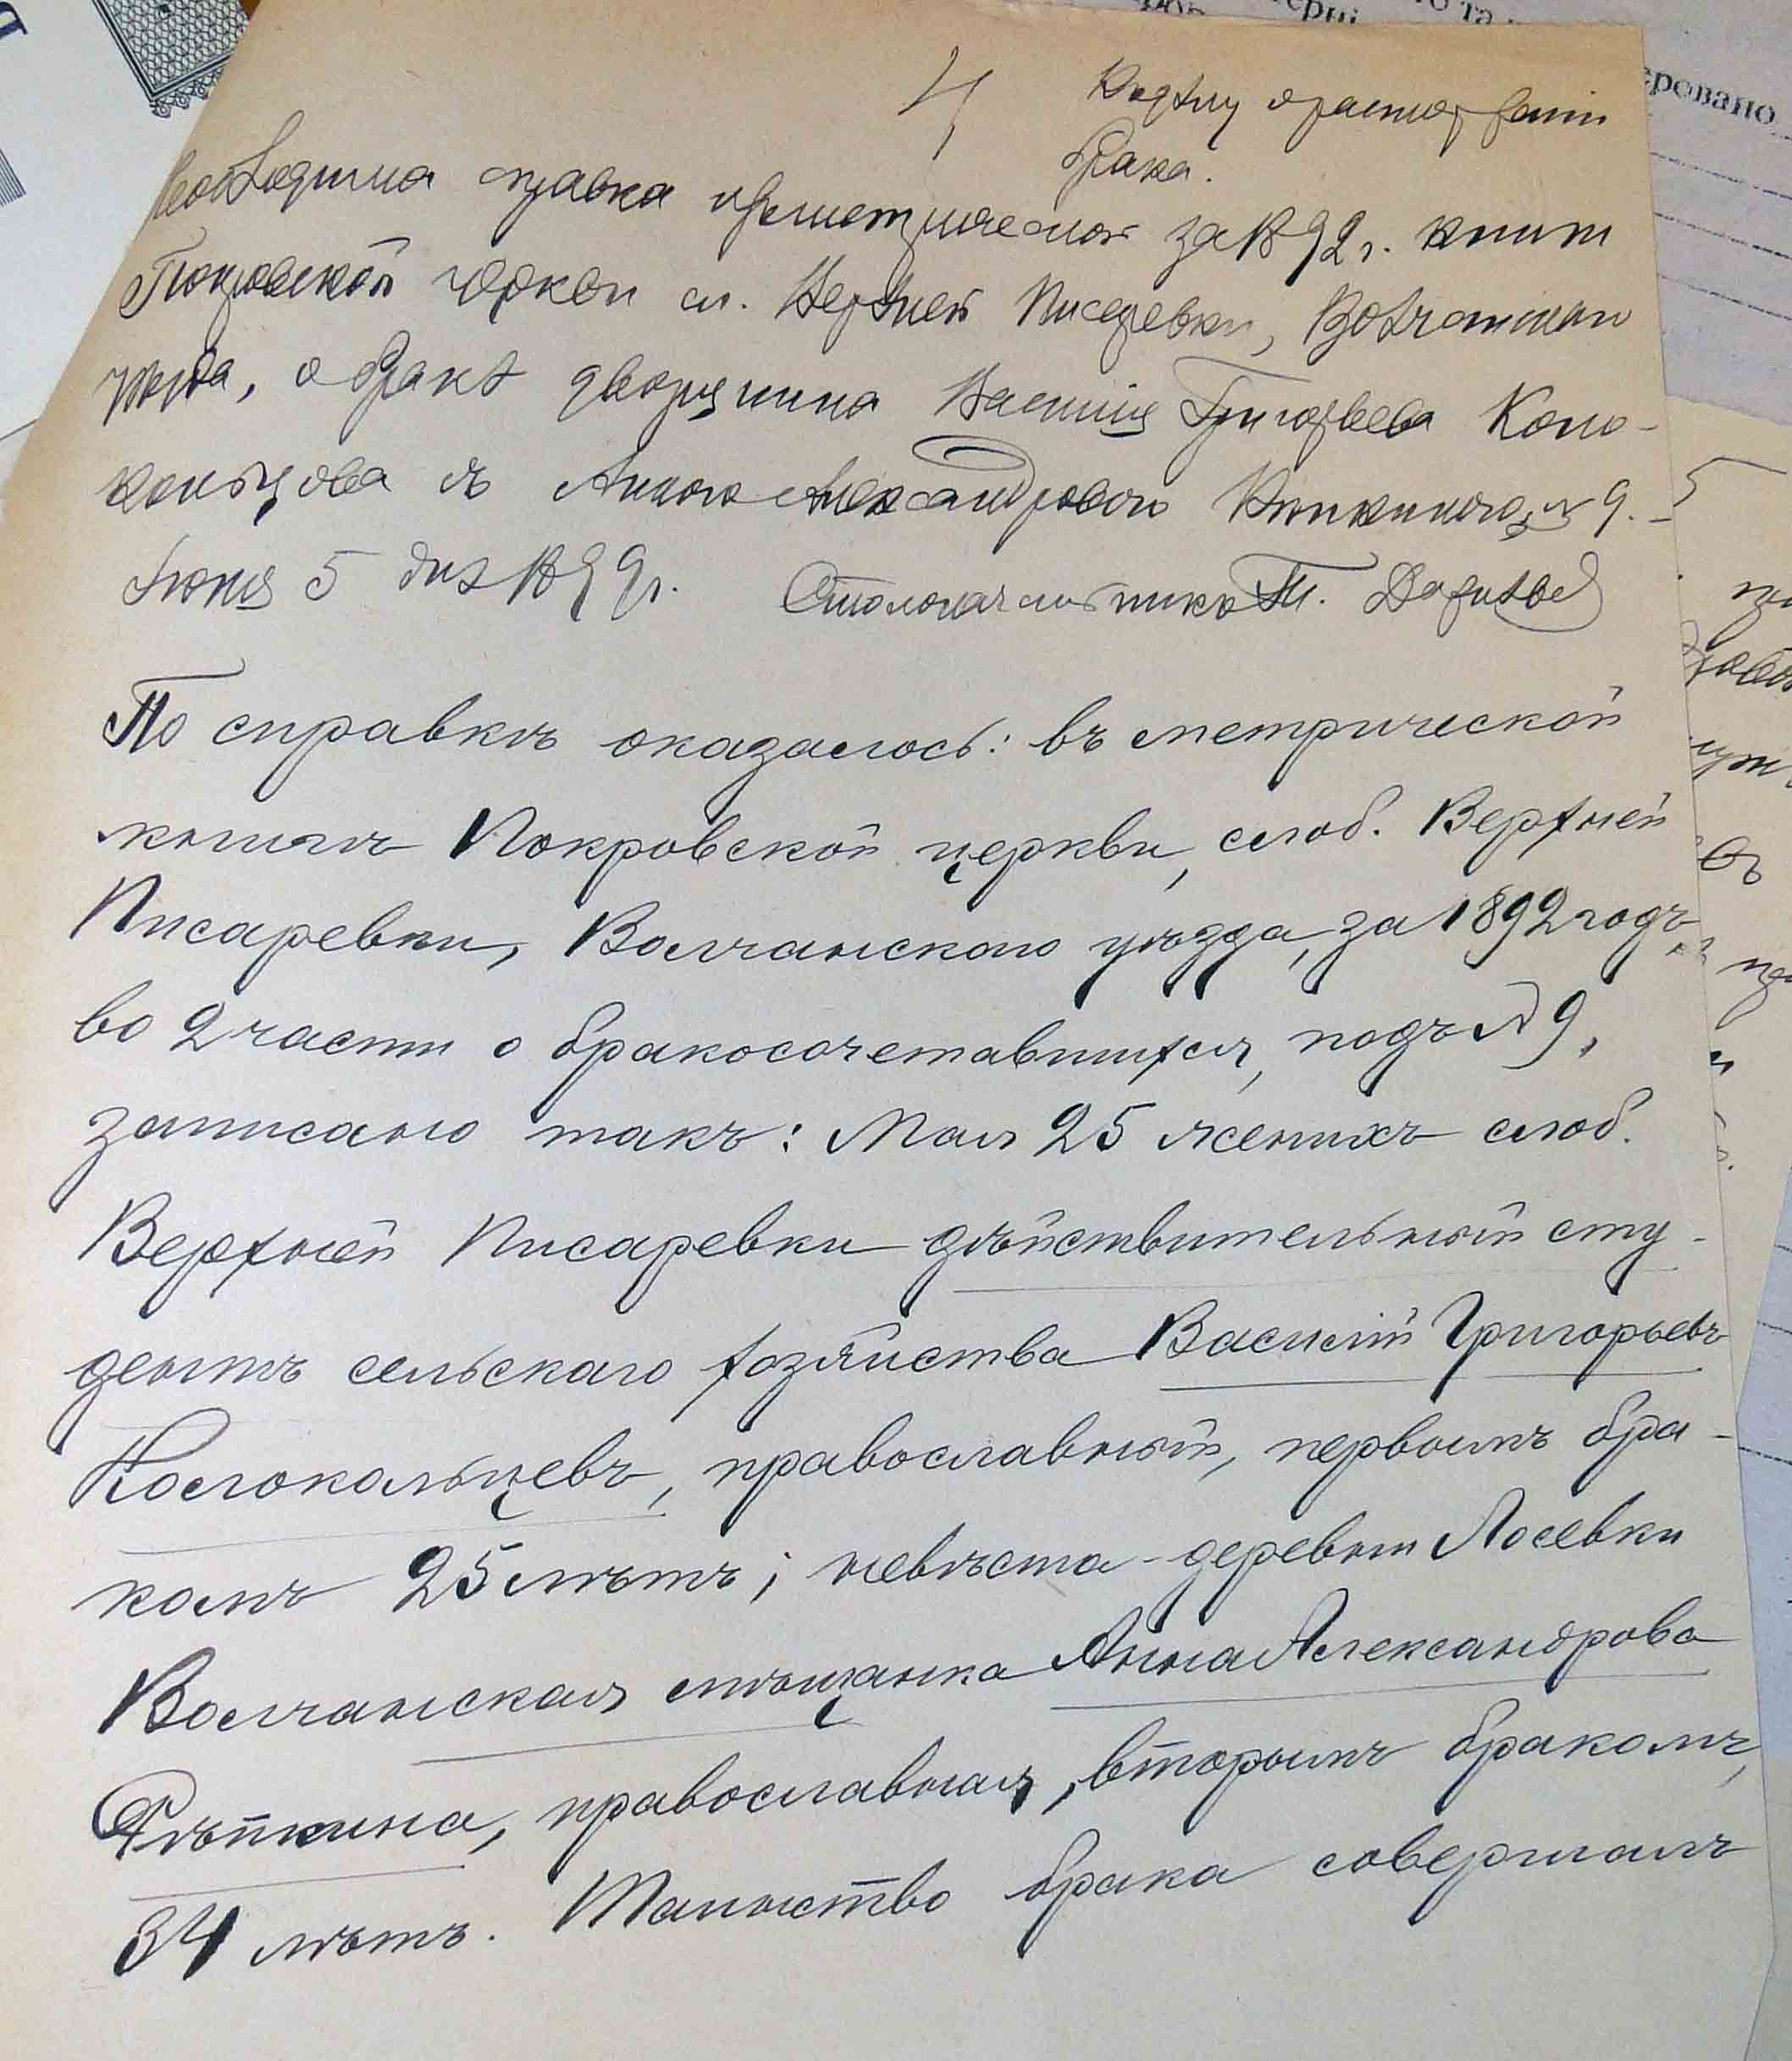 4
Къ дѣлу о расторженіи
брака.
Необходима справка изъ метрической за 1892 г. книги
Покровской церкви сл. Верхней Писаревки, Волчанскаго
уѣзда, о бракѣ дворянина Василія Григорьева Коло-
кольцова съ Анною Александровою № 9.
Іюня 5 дня 1899 г. Столоначальникъ П.
По справкѣ оказалось: въ метрической
книгѣ Покровской церкви, слоб. Верхней
Писаревки, Волчанскаго уѣзда, за 1892 годъ
во 2 части о бракосочетавшихся, подъ № 9,
записано такъ: Мая 25 женихъ слоб.
Верхней Писаревки дѣйствительный сту-
дентъ сельскаго хозяйства Василій Григорьевъ
Колокольцевъ, православный, первымъ бра-
комъ 25 лѣтъ; невѣста - деревни Лосевки
Волчанская мѣщанка Анна Александрова
Рѣпкина, православная, вторымъ бракомъ,
34 лѣтъ. Таинство брака совершалъ
еровано